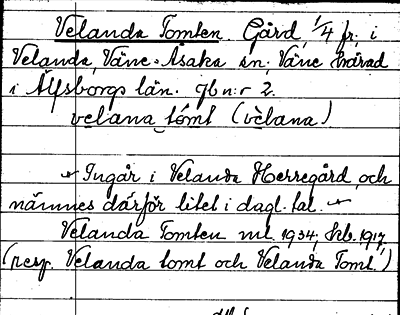 Velanda Tomten. Gård, 1/4 fr. i
Velanda, Väne-Åsaka sn. Väne härad
i Älfsborgs län. gbn:r 2.
velana tomt (vèlana)
Ingår i Velanda Herregård och
nämnes därför litet i dagl. tal.
Velanda Tomten ml. 1934, Kb. 1917,
(resp. Velanda tomt och Velanda Tomt.)